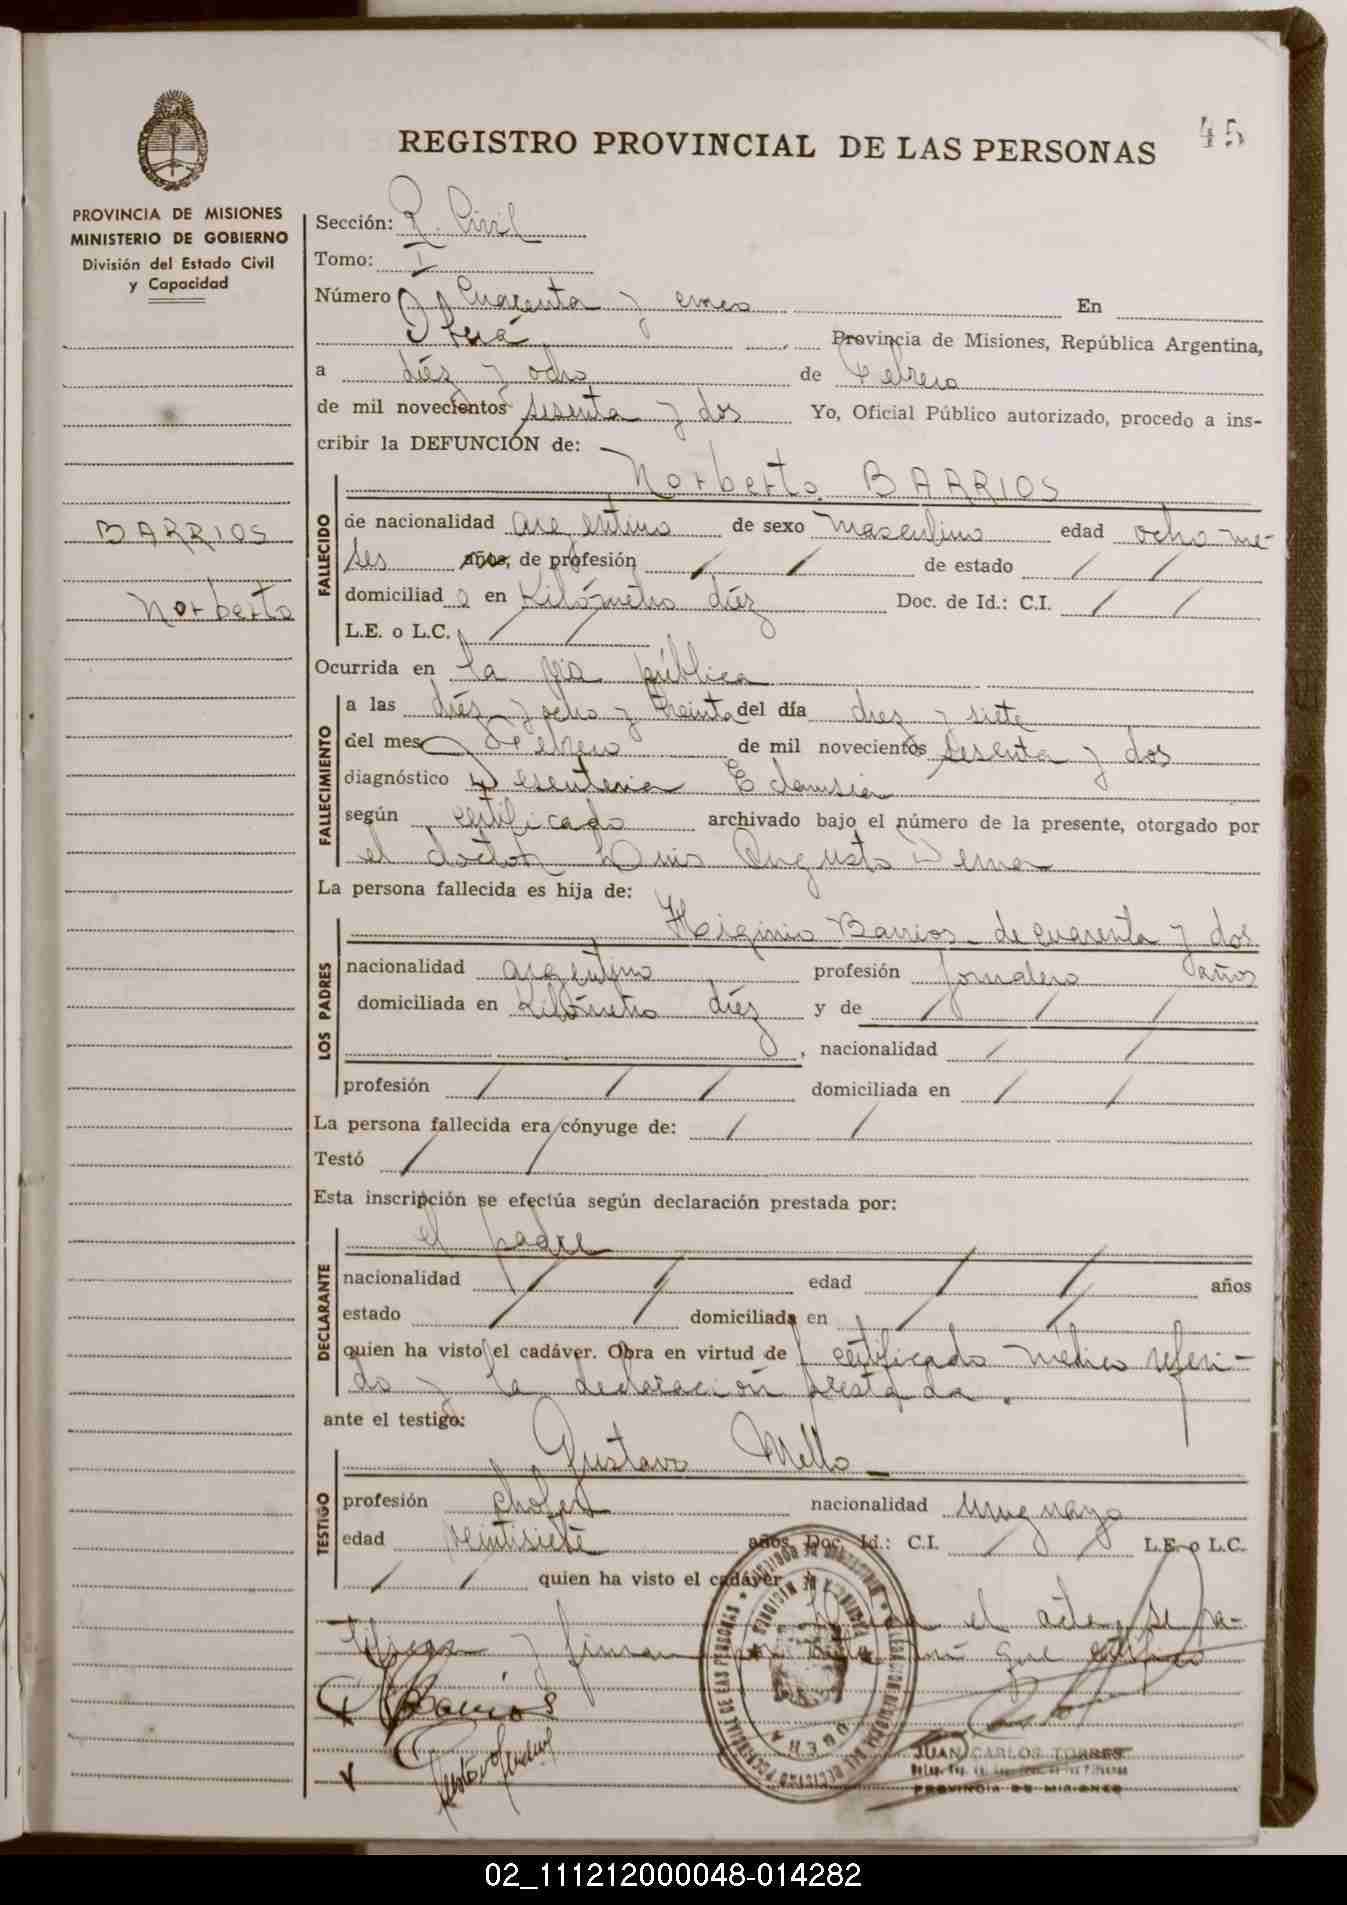 REGISTRO PROVINCIAL DE LAS PERSONAS 45
PROVINCIA DE MISIONES
MINISTERIO DE GOBIERNO
División del Estado Civil
y Capacidad
BARRIOS
Norberto
Sección: R. Civil
Tomo: I
Número Cuarenta y cinco En
Oberá Provincia de Misiones, República Argentina,
a diéz y ocho de Febrero
de mil novecientos sesenta y dos Yo, Oficial Público autorizado, procedo a ins-
cribir la DEFUNCIÓN de:
Norberto BARRIOS
FALLECIDO
de nacionalidad argentino de sexo masculino edad ocho me-
ses años, de profesión / / de estado / /
domiciliado en Kilómetro diéz Doc. de Id.: C.I. / /
L.E. o L.C. / /
Ocurrida en la via pública
FALLECIMIENTO
a las diéz y ocho y treinta del día diez y siete
del mes Febrero de mil novecientos sesenta y dos
diagnóstico
según certificado archivado bajo el número de la presente, otorgado por
el doctor Luis Augusto
La persona fallecida es hija de:
LOS PADRES
Higinio Barrios de cuarenta y dos
años
nacionalidad argentino profesión Jornalero
domiciliada en Kilómetro diéz y de / / /
, nacionalidad / /
profesión / / / domiciliada en / /
La persona fallecida era cónyuge de: / /
Testó / /
Esta inscripción se efectúa según declaración prestada por:
DECLARANTE
el padre
nacionalidad / / edad / / años
estado / / domiciliada en / /
quien ha visto el cadáver. Obra en virtud de certificado médico referi-
do y la declaración prestada.
ante el testigo:
TESTIGO
Gustavo Mello
profesión chofer nacionalidad Uruguayo
edad veintisiete años Doc. Id.: C.I. / / L.E. o L.C.
/ / quien ha visto el cadáver
el acta, se ra-
tifican y firman por ante mi que certifico
Barrios
OBERA
JUAN CARLOS TORRES
PROVINCIA DE MISIONES
02_111212000048-014282